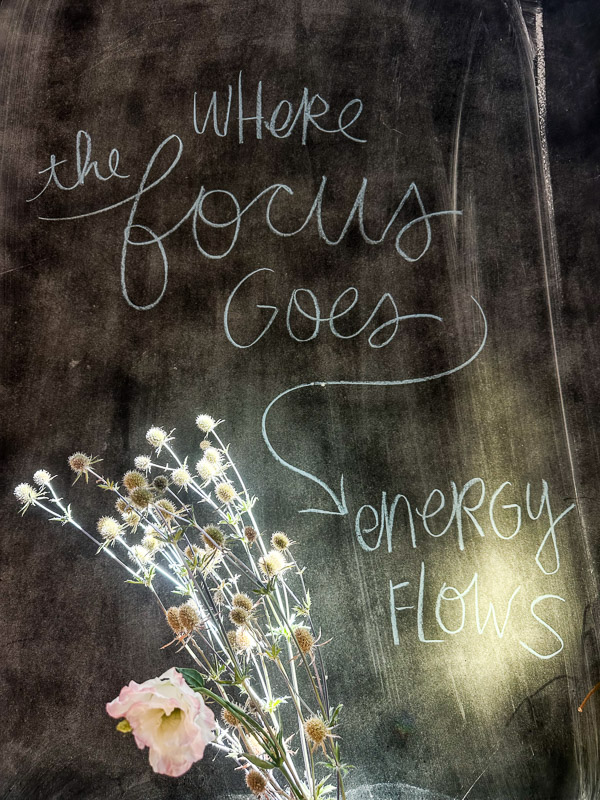 WHeRe
the focus
Goes
eneRGy
FLOWS